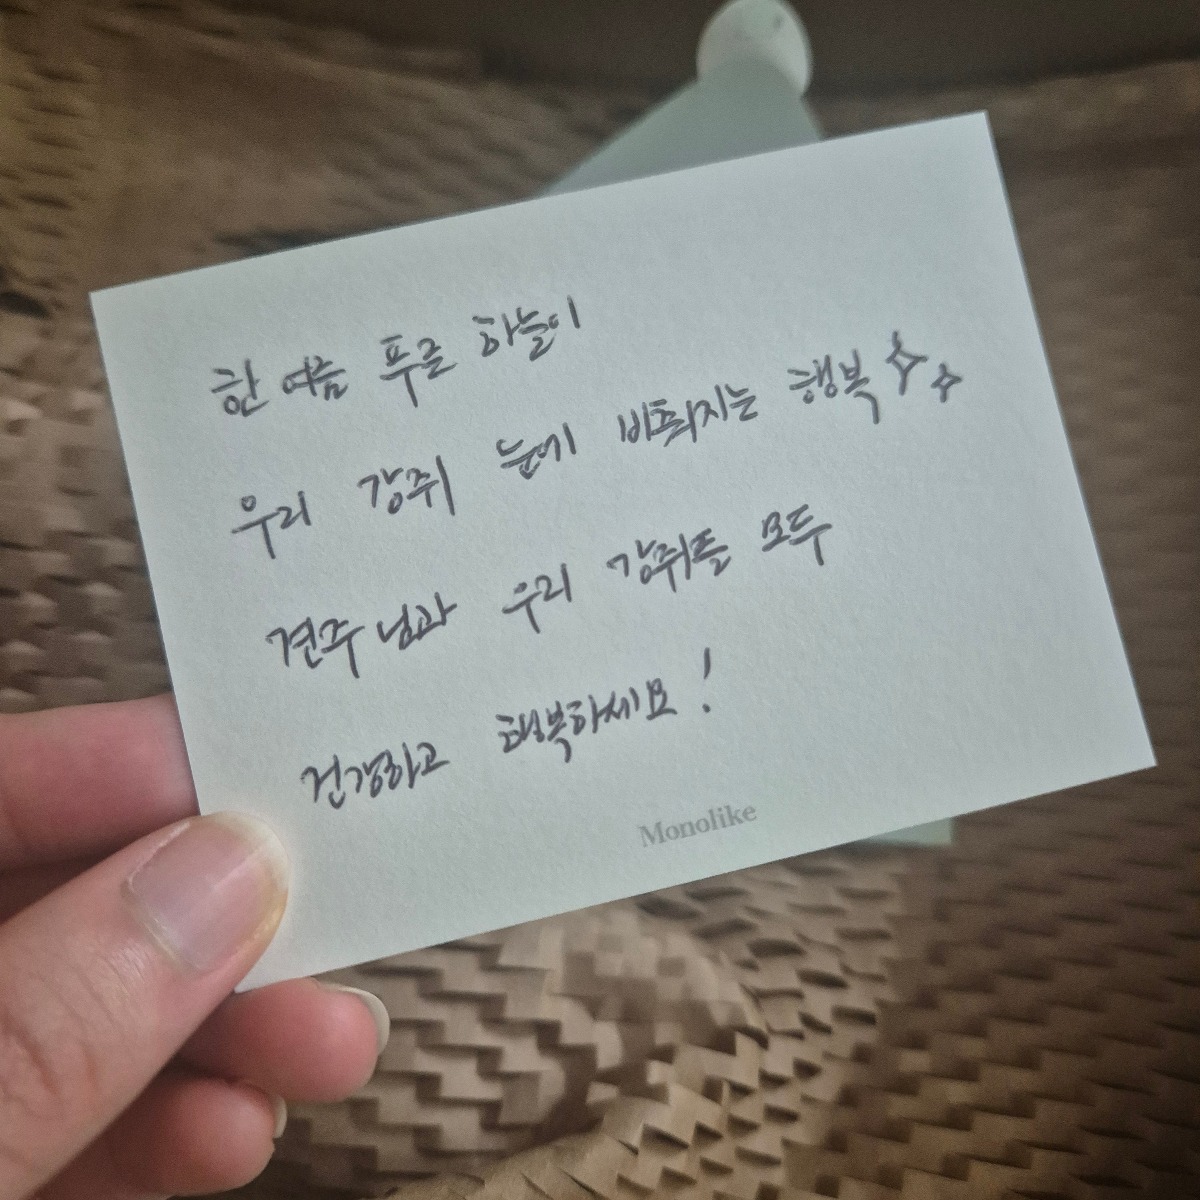 한 여름 푸른 하늘이
우리 강쥐 눈에 비춰지는 행복
견주님과 우리 강쥐들 모두
건강하고 행복하세요!
Monolike